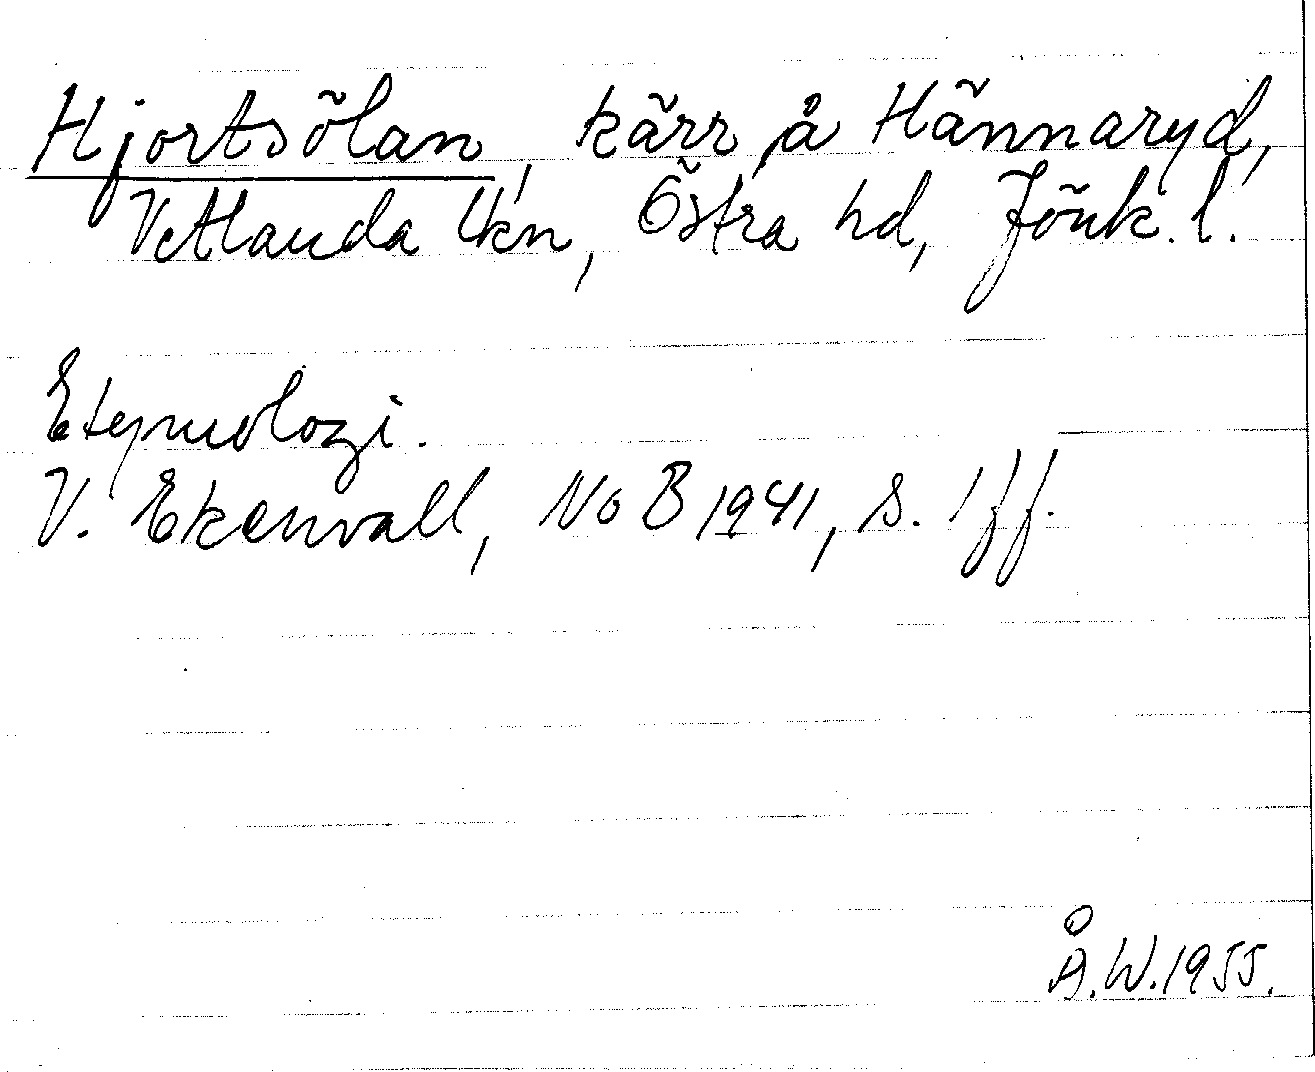 Hjortsölan, kärr å Hännaryd,
Vetlanda lkn, Östra hd, Jönk. l.
Etymologi.
V. Ekenvall, NoB 1941, s. 1 ff.
Å.W.1955.